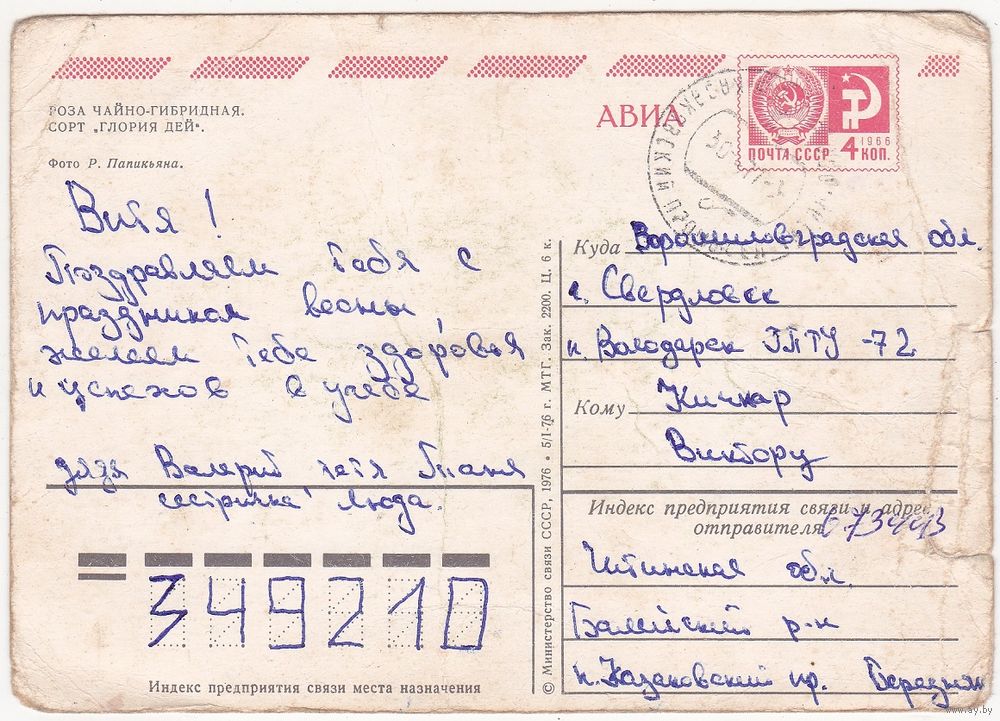 РОЗА ЧАЙНО-ГИБРИДНАЯ.
СОРТ „ГЛОРИЯ ДЕЙ“.
Фото Р. Папикьяна.
АВИА
ПОЧТА СССР
1966
4 КОП.
Витя!
Поздравляем тебя с
праздником весны,
желаем тебе здоровья
и успехов в учебе
дядя Валерий тетя Таня
сестричка Люда.
349210
Индекс предприятия связи места назначения
© Министерство связи СССР, 1976 • 5/I-76 г. МТГ. Зак. 2200. Ц. 6 к.
Куда Ворошиловградская обл.
г. Свердловск
п. Володарск ГПТУ-72
Кому Кичкар
Виктору
Индекс предприятия связи и адрес
отправителя 673443
Читинская обл.
Балейский р-н
п. Казаковский пр. Бередняк
www.ay.by